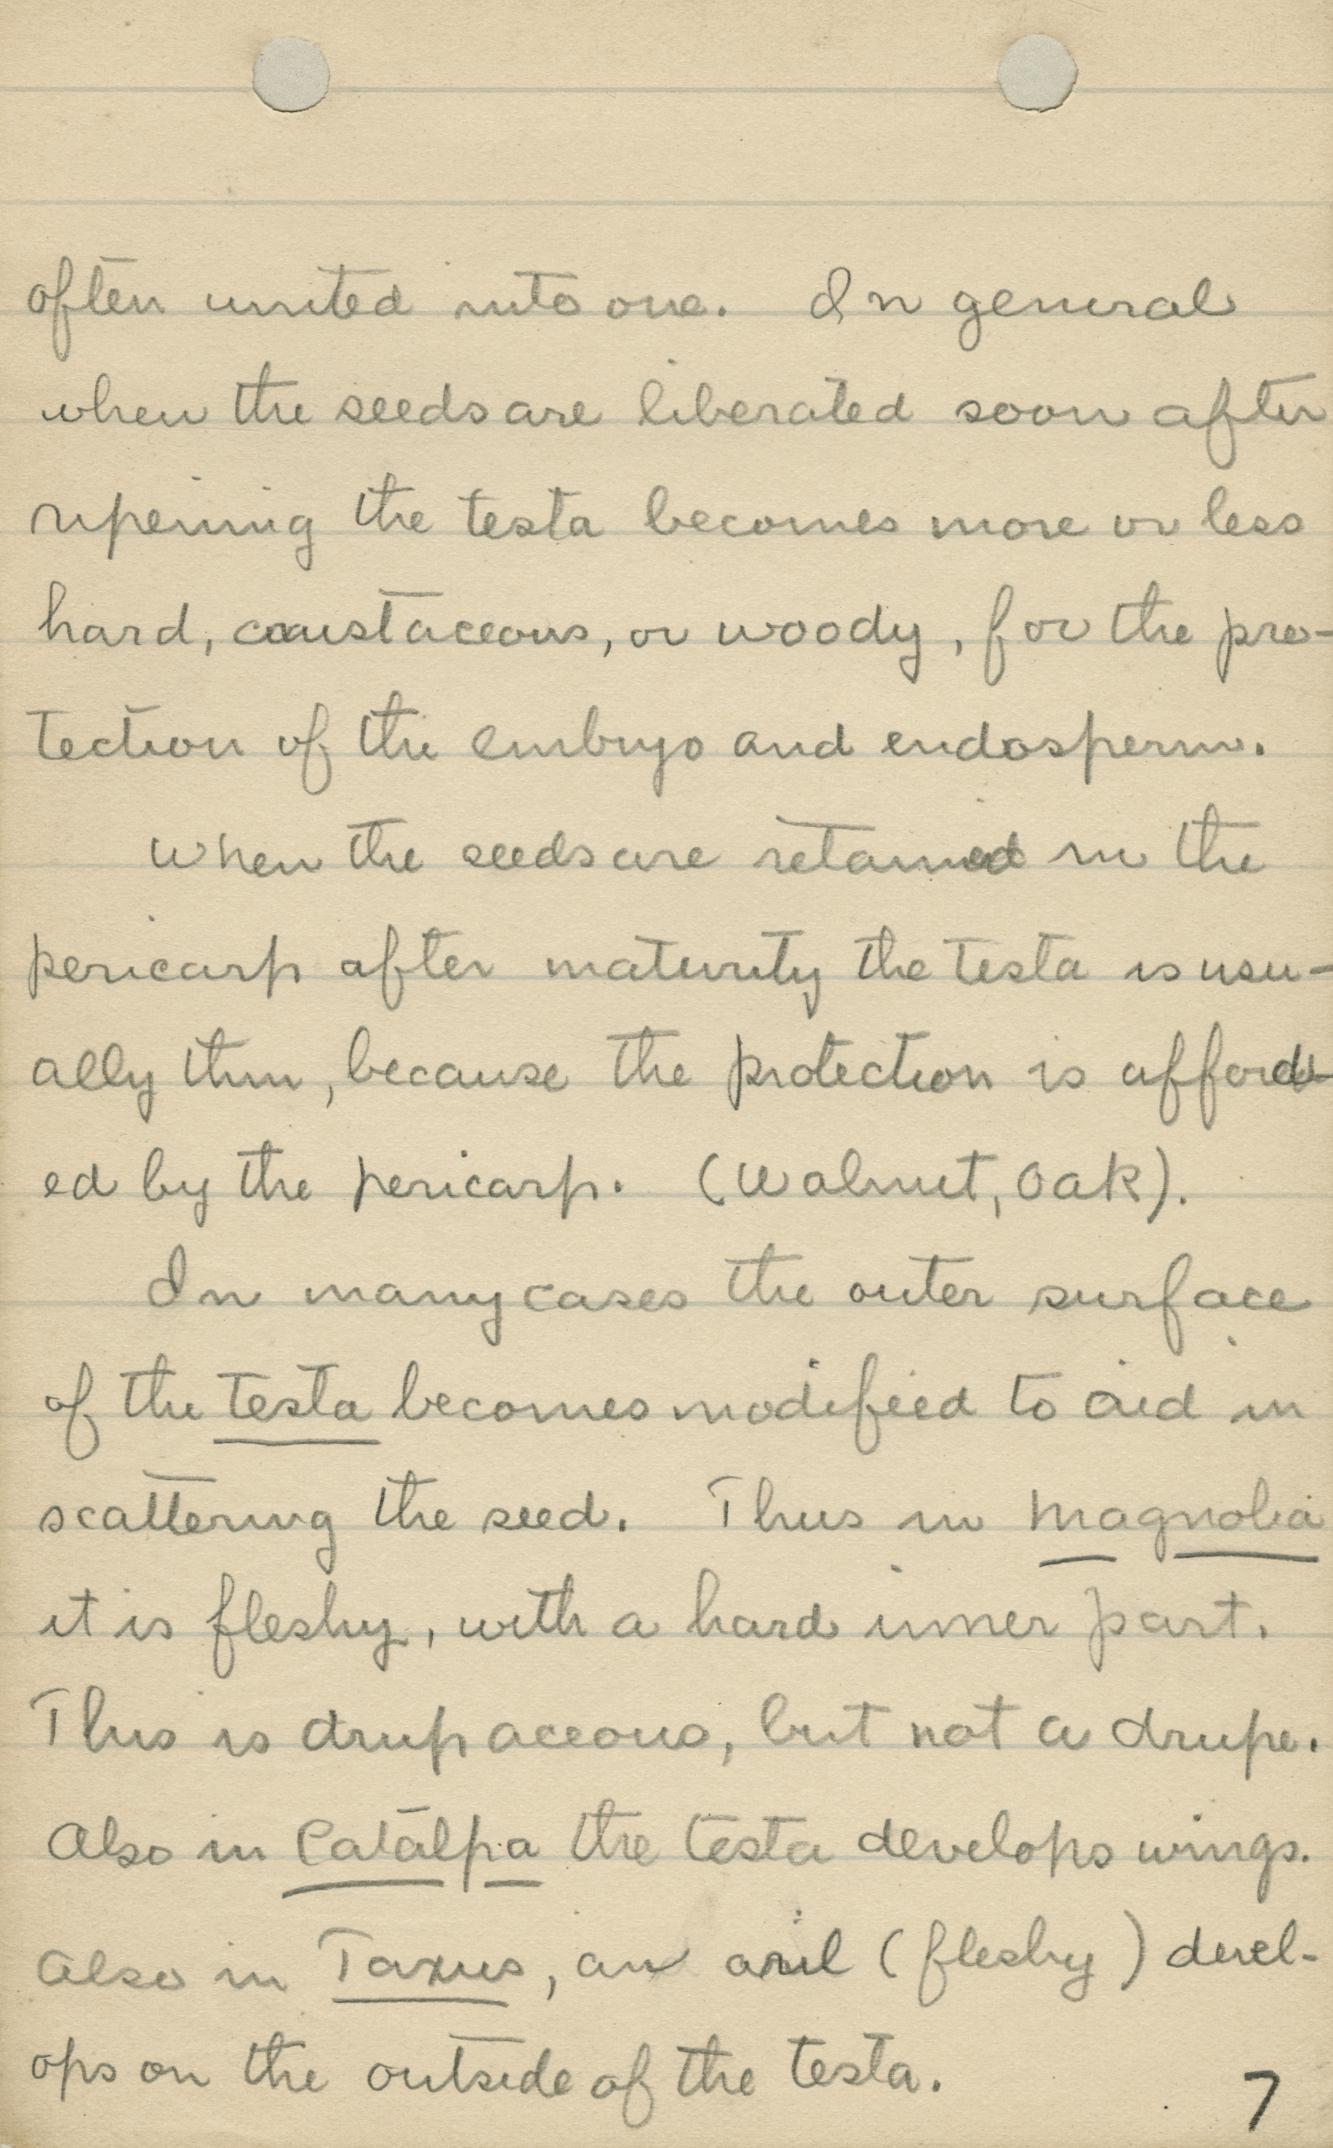 often united into one. In general
when the seeds are liberated soon after
ripening the testa becomes more or less
hard, crustaceous, or woody, for the pro-
tection of the embryo and endosperm.
When the seeds are retained in the
pericarp after maturity the testa is usu-
ally thin, because the protection is afford-
ed by the pericarp. (Walnut, Oak).
In many cases the outer surface
of the testa becomes modified to aid in
scattering the seed. Thus in Magnolia
it is fleshy, with a hard inner part.
This is drupaceous, but not a drupe.
Also in Catalpa the testa develops wings.
Also in Taxus, an aril (fleshy) devel-
ops on the outside of the testa.
7